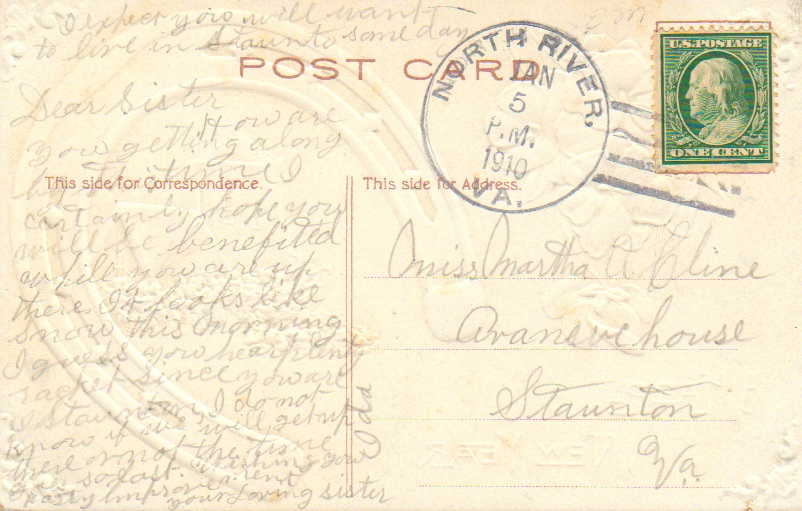 I expect you will want
to live in Staunto some day
POST CARD
NORTH RIVER,
JAN
5
P.M.
1910
VA.
U.S. POSTAGE
ONE CENT
Dear Sister
How are
you getting along
by this time I
This side for Correspondence.
certainly hope you
will be benefited
while you are up
there. It looks like
snow this morning
I guess you hear plenty
racket since you are
I Staunton I do not
know if we will get up
there or not the time
Wishing you
improvement
your loving sister
Ida
This side for Address.
Miss Martha A Cline
house
Staunton
Va.
NEW YEAR